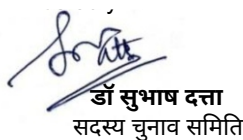 डॉ सुभाष दत्ता
सदस्य चुनाव समिति